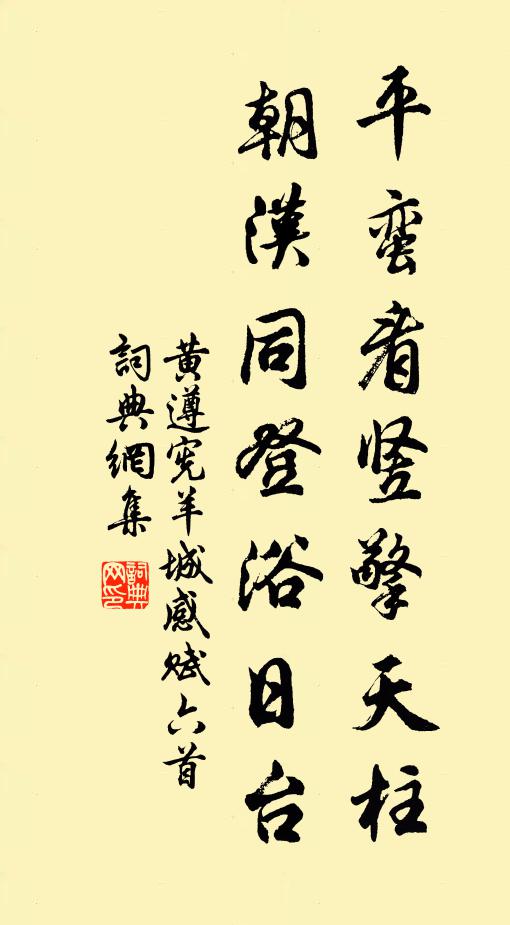 平蛮看竖擎天柱
朝漢同登浴日台
黄遵宪羊城感赋六首
詞典網集
詞典网印